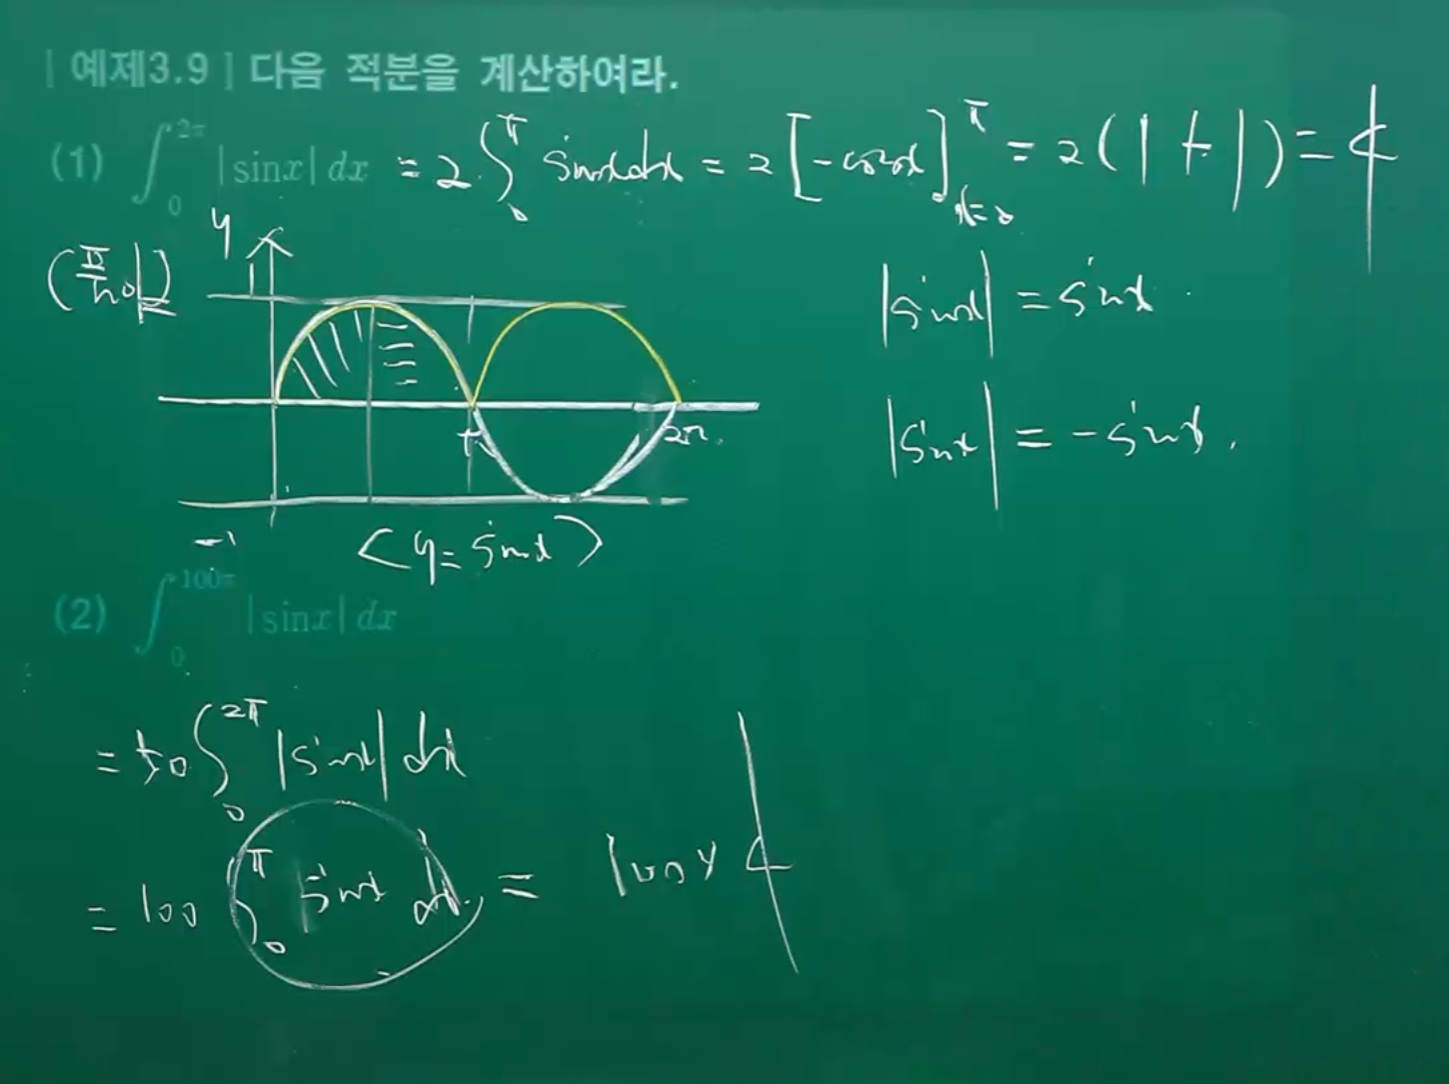 [ 예제3.9 ] 다음 적분을 계산하여라.
(1) ∫₀^{2π} |sinx| dx = 2·∫₀^π sinx dx = 2[-cosx]_{x=0}^π = 2(1+1) = 4
y
1
|sinx| = sinx
|sinx| = -sinx.
π 2π
-1
<y=sinx>
(2) ∫₀^{100π} |sinx| dx
= 50 ∫₀^{2π} |sinx| dx
= 100 ∫₀^π sinx dx = 100 × 4